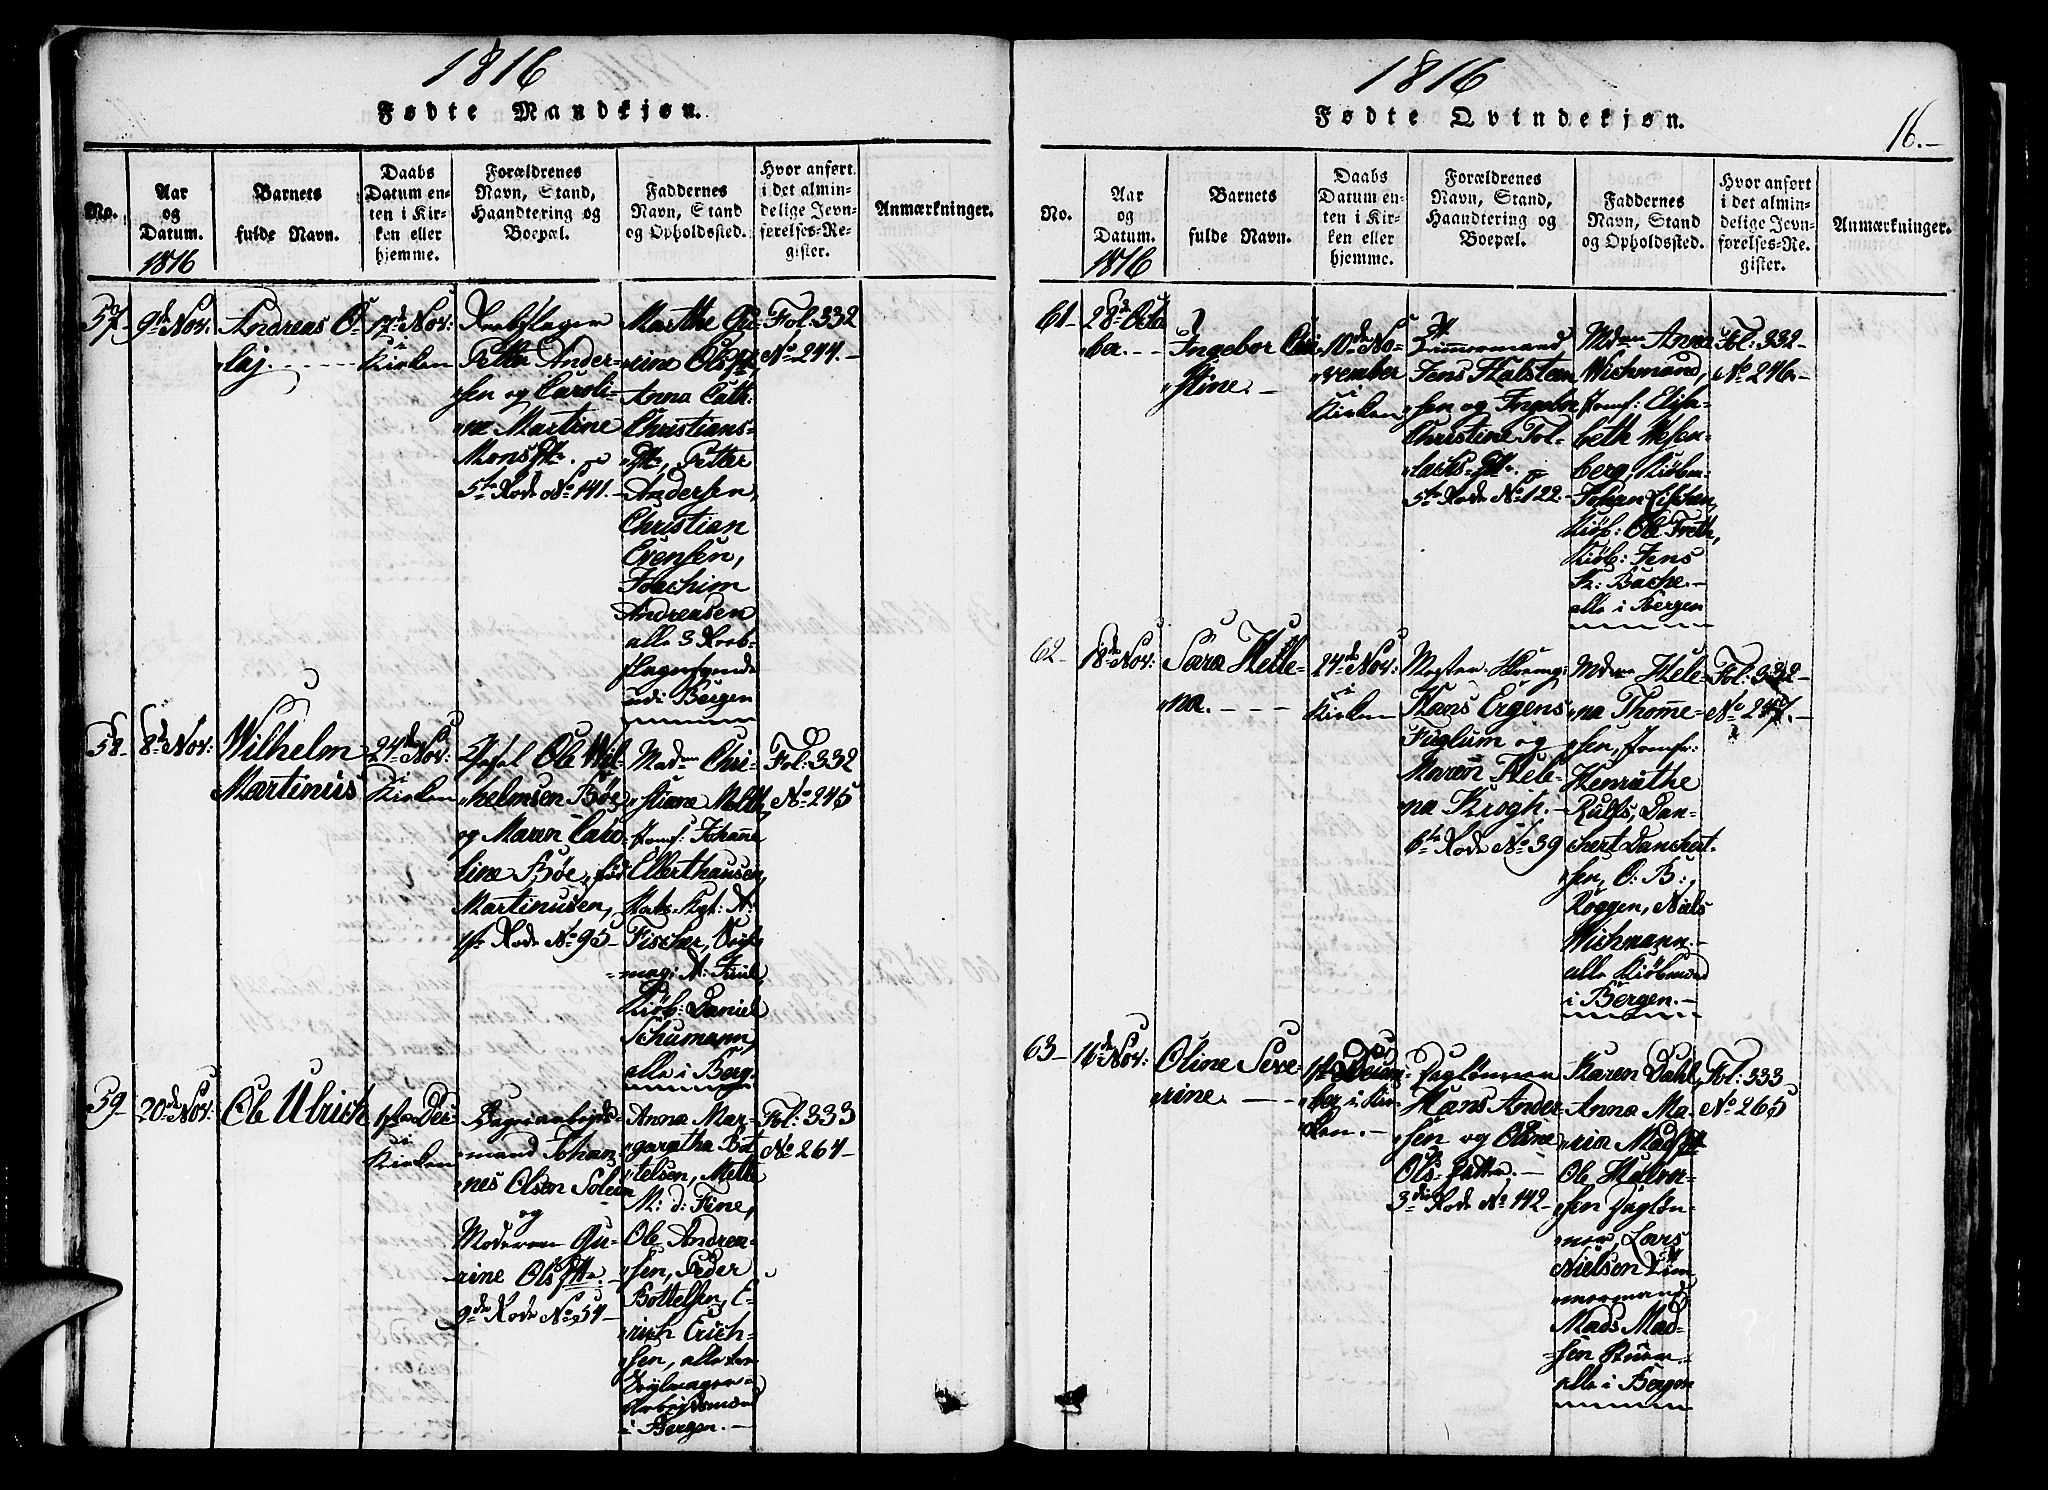 1816
Fødte Mandkjøn.
No.
Aar
og
Datum.
1816
Barnets
fulde Navn.
Daabs
Datum en-
ten i Kir-
ken eller
hjemme.
Forældrenes
Navn, Stand,
Haandtering og
Boepæl.
Faddernes
Navn, Stand
og Opholdssted.
Hvor anført
i det almin-
delige Jevn-
førelses-Re-
gister.
Anmærkninger.
57
9de Nov:
Andreas O-
laj.
17de Nov:
i
Kirken
Petter Ander-
sen og Caroli-
ne Martine
Monsdtr.
5te Rode No 141.
Marthe Ca-
rine Olsdtr,
Anna Cath:
Christians-
dtr, Petter
Andersen,
Christian
Evensen,
Joachim
Andreasen
alle 3
i Bergen
Fol: 332
No 244.
58.
8de Nov:
Wilhelm
Martinus
24de Nov:
i
Kirken
Ole Wil-
helmsen Böe
og Maren Caro-
line Böe, fød
Martinusen,
1ste Rode No 95
Madm Chri-
stiane Moltt,
Jomf: Johanne
Ellerthausen,
Fischer,
Kiøb: Daniel
Schumann,
alle i Berg.
Fol: 332
No 245
59
20de Nov:
Ole Ulrich
1ste Dec
i
Kirken
mand Johan-
nes Olsen Solem
og
Moderen Gu-
rine Olsdtr.
9de Rode No 54
Anna Mar-
garetha Bot-
telsen, Mette
M: d: Fine,
Ole Andrea-
sen, Peder
Bottelsen, E-
rich Erich-
sen, alle
Arbeidsmænd
i Bergen.
Fol: 333
No 264
1816
Fødte Qvindekjøn.
16.
No.
Aar
og
Datum.
1816
Barnets
fulde Navn.
Daabs
Datum en-
ten i Kir-
ken eller
hjemme.
Forældrenes
Navn, Stand,
Haandtering og
Boepæl.
Faddernes
Navn, Stand
og Opholdssted.
Hvor anført
i det almin-
delige Jevn-
førelses-Re-
gister.
Anmærkninger.
61
28de Octo
ber.
Ingebor Chri-
stine.
10de No-
vember
i
Kirken
Zimmermand
Jens Halsteen-
sen og Ingebor
Christine Tol-
lachs-dtr.
5te Rode No 122.
Mdm Anna
Wichmand,
Jomf: Elisa-
beth Wesen-
berg, Kiøbm.
Johan
Kiøb: Ole Treth,
Kiøb: Jens
K: Bache.
alle i Bergen
Fol: 332
No 246
62
18de Nov:
Sara Helle-
na.
24de Nov:
i
Kirken
Hans Ergens
Fuglum og
Maren Hele-
na Krogh.
6te Rode No 39
Mdm Hele-
na Thomme-
sen, Jomfr:
Henrathe
Rulfs, Dan-
chert Danchert-
sen, O: B:
Roggen, Niels
Wichmann.
alle Kiøbmænd
i Bergen.
Fol: 332
No 247.
63
16de Nov:
Oline Seve-
rine.
1ste Decem-
ber i Kir-
ken.
Daglønner
Hans Ander-
sen og Oline
Ols-datter.
3die Rode No 142
Karen Dahl,
Anna Ma-
ria Madsdtr
Ole Halvor-
sen Dagløn-
ner, Lars
Nielsen Zim-
mermand
Mads Mad-
sen
alle i Bergen
Fol: 333
No 265